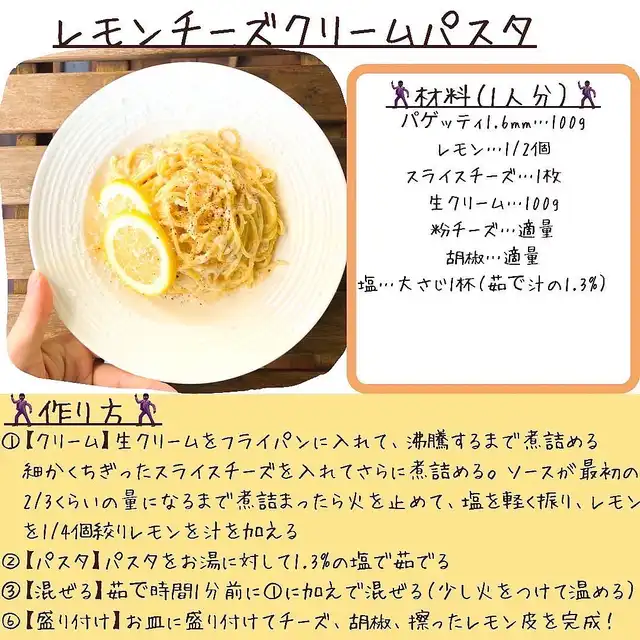 レモンチーズクリームパスタ
材料(1人分)
パゲッティ1.6mm…100g
レモン…1/2個
スライスチーズ…1枚
生クリーム…100g
粉チーズ…適量
胡椒…適量
塩…大さじ1杯(茹で汁の1.3%)
作り方
①【クリーム】生クリームをフライパンに入れて、沸騰するまで煮詰める
細かくちぎったスライスチーズを入れてさらに煮詰める。ソースが最初の
2/3くらいの量になるまで煮詰まったら火を止めて、塩を軽く振り、レモン
を1/4個絞りレモンを汁を加える
②【パスタ】パスタをお湯に対して1.3%の塩で茹でる
③【混ぜる】茹で時間1分前に①に加えて混ぜる(少し火をつけて温める)
⑥【盛り付け】お皿に盛り付けてチーズ、胡椒、擦ったレモン皮を完成!